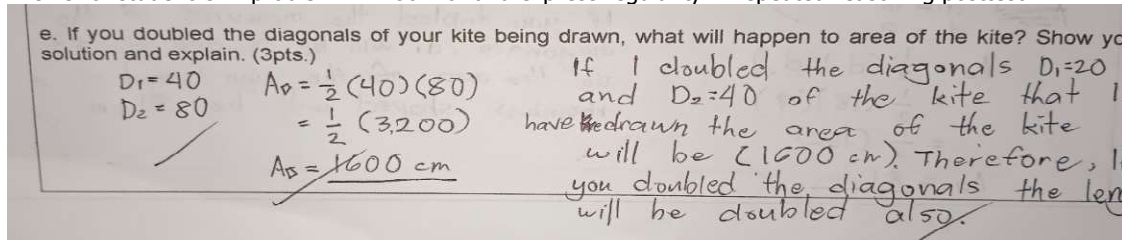 e. If you doubled the diagonals of your kite being drawn, what will happen to area of the kite? Show yo
solution and explain. (3pts.)
D₁ = 40
D₂ = 80
A₀ = 1/2 (40)(80)
= 1/2 (3,200)
= 1600 cm
If I doubled the diagonals D₁=20
and D₂=40 of the kite that I
have drawn the area of the kite
will be (1600 cm). Therefore, I
you doubled the diagonals the len
will be doubled also.